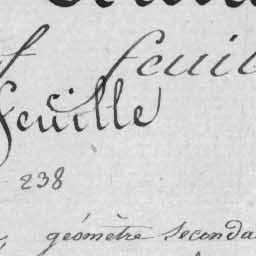 feuil
feuille
238
géomètre seconda